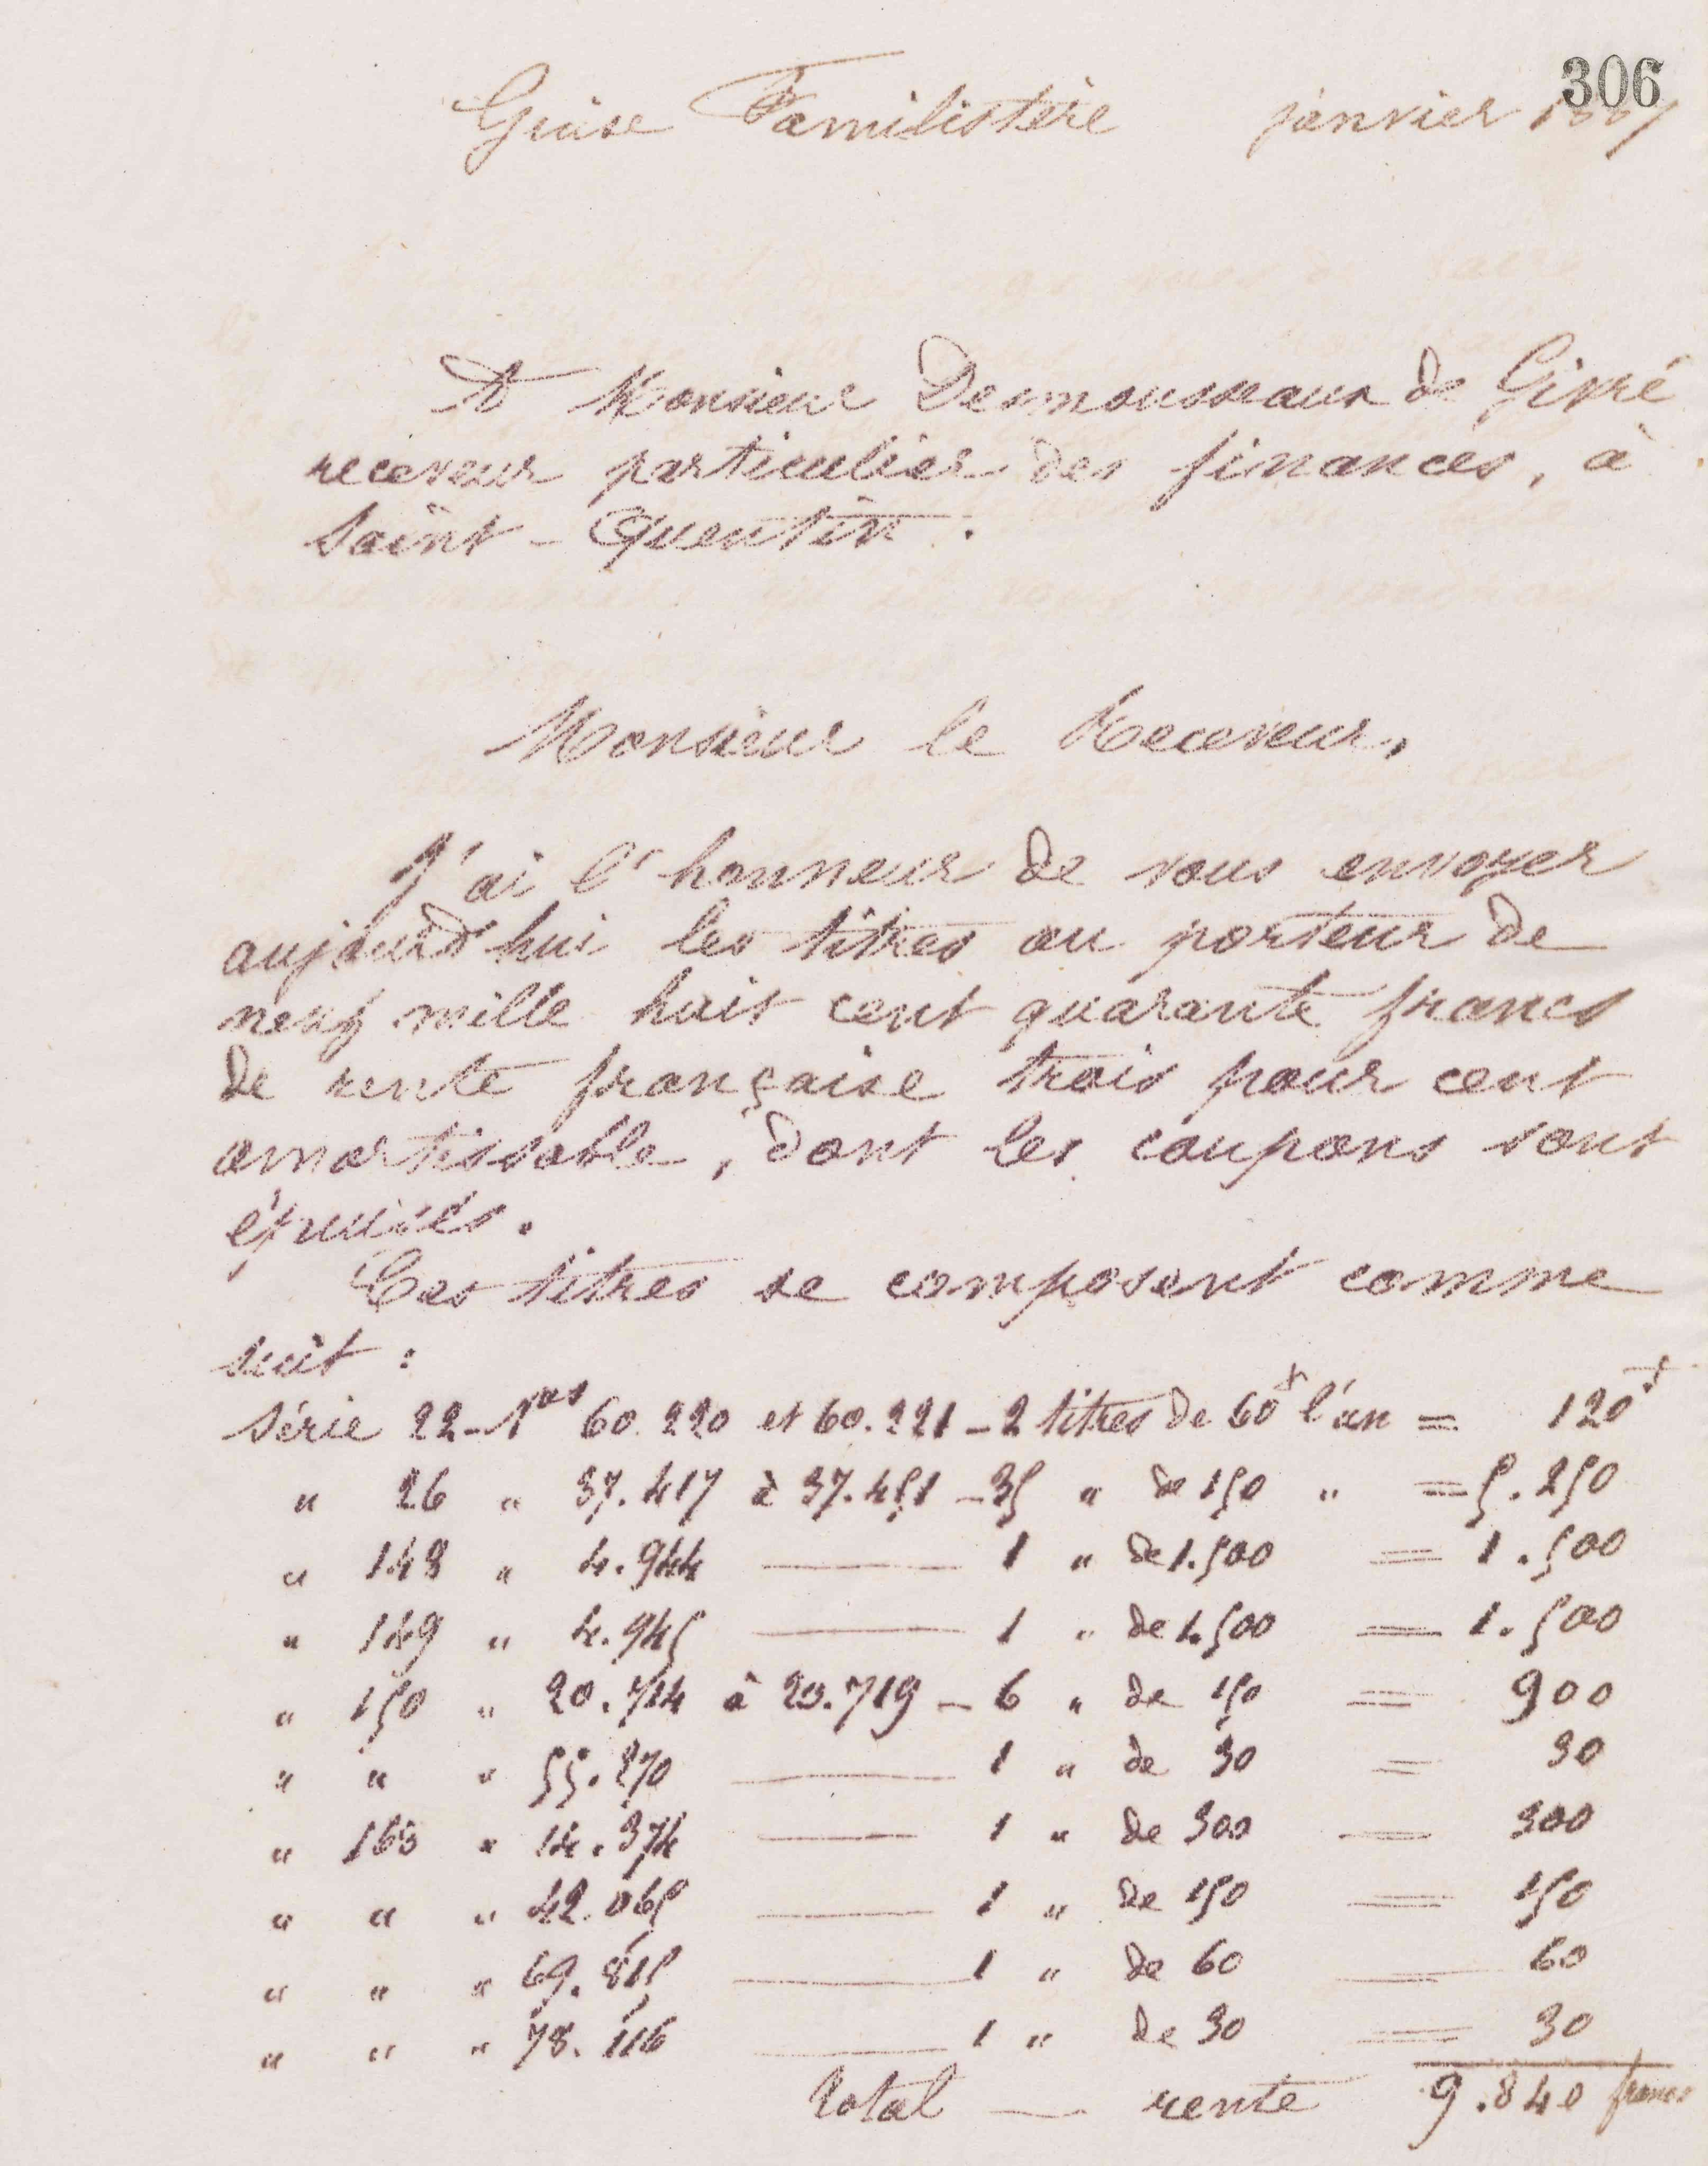 306
Guise Familistère janvier 1887
A Monsieur Desmousseaux de Givré
receveur particulier des finances, à
Saint-Quentin.
Monsieur le Receveur,
J'ai l'honneur de vous envoyer
aujourd'hui les titres au porteur de
neuf mille huit cent quarante francs
de rente française trois pour cent
amortissable, dont les coupons sont
épuisés.
Ces titres se composent comme
suit :
Série 22 - Nos 60.220 et 60.221 - 2 titres de 60f l'an = 120f
" 26 " 37.417 à 37.451 - 35 " de 150 " = 5.250
" 148 " 4.944 — 1 " de 1.500 = 1.500
" 149 " 4.945 — 1 " de 1.500 = 1.500
" 150 " 20.714 à 20.719 - 6 " de 150 = 900
" " " 55.270 — 1 " de 30 = 30
" 163 " 14.374 — 1 " de 300 = 300
" " " 42.065 — 1 " de 150 = 150
" " " 69.815 — 1 " de 60 = 60
" " " 78.116 — 1 " de 30 = 30
Total — rente 9.840 francs